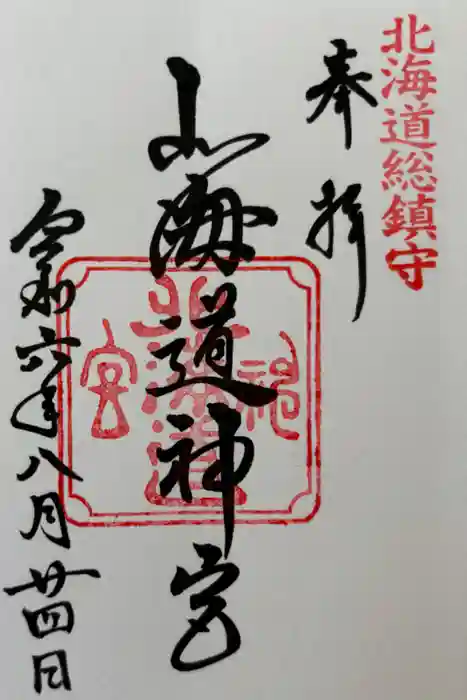 北海道総鎮守
奉拝
北海道神宮
北海道
神
宮
令和六年八月廿四日